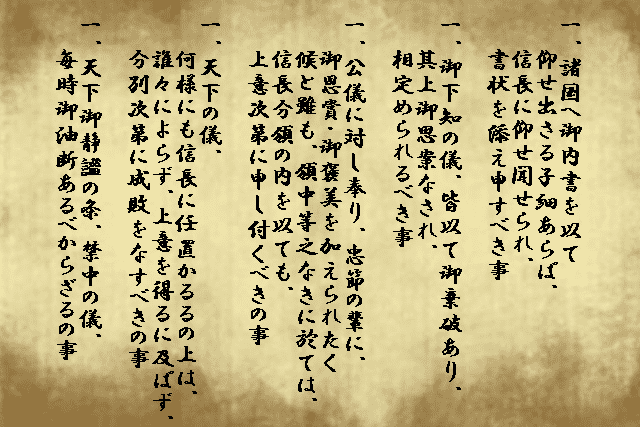 一、諸国へ御内書を以て
仰せ出さる子細あらば、
信長に仰せ聞せられ、
書状を添え申すべき事
一、御下知の儀、皆以て御棄破あり、
其上御思案なされ、
相定められるべき事
一、公儀に対し奉り、忠節の輩に、
御恩賞・御褒美を加えられたく
候と雖も、領中等之なきに於ては、
信長分領の内を以ても、
上意次第に申し付くべきの事
一、天下の儀、
何様にも信長に任置かるるの上は、
誰々によらず、上意を得るに及ばず、
分別次第に成敗をなすべきの事
一、天下御静謐の条、禁中の儀、
毎時御油断あるべからざるの事